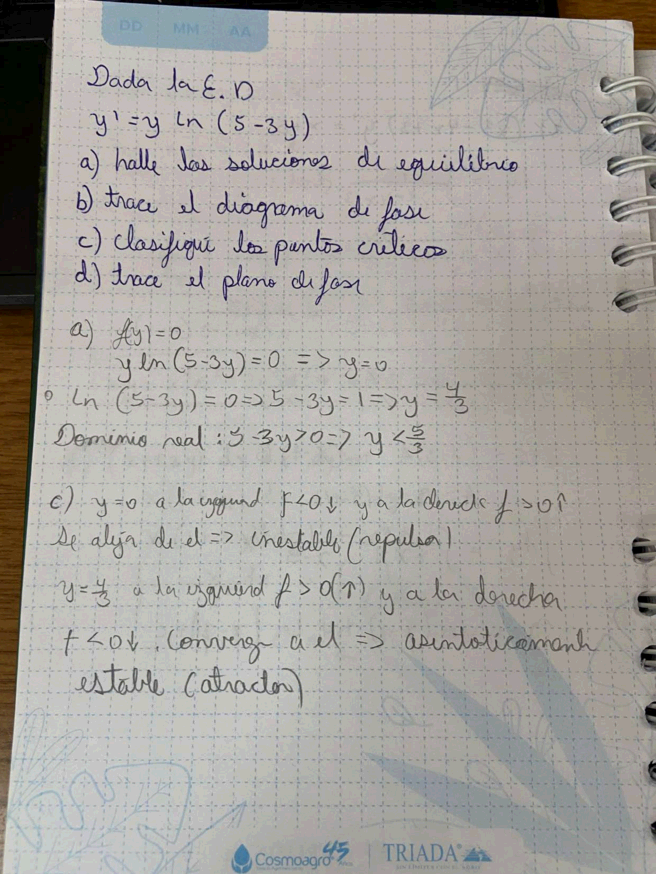 DD MM AA
Dada la E.D
y' = y Ln (5-3y)
a) halle las soluciones de equilibrio
b) trace el diagrama de fase
c) clasifique los puntos criticos
d) trace el plano de fase
a) f(y)=0
y ln (5-3y) = 0 => y=0
o Ln (5-3y) = 0 => 5-3y=1 => y = 4/3
Dominio real : 5-3y>0 => y < 5/3
c) y=0 a la izquierd f<0↓ y a la derech f >0↑
se aleja de el => inestable (repulsor)
y=4/3 a la izquierd f > 0(↑) y a la derecha
f <0↓. Converge a el => asintoticament
estable (atractor)
Cosmoagro 45 TRIADA